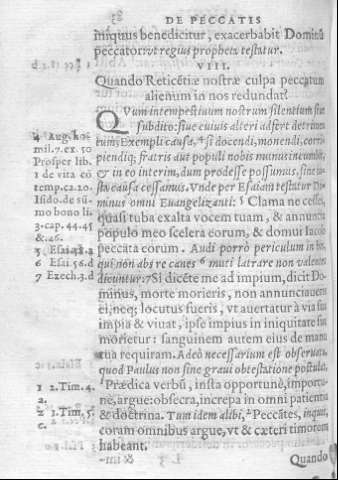 DE PECCATIS
iniquus benedicitur, exacerbabit Dominū
peccator: vt regius propheta testatur.
VIII.
Quando Reticētiæ nostræ culpa peccatum
alienum in nos redundat?
QVum intempestiuum nostrum silentium siue
subdito: siue cuiuis alteri adfert detrimen
tum, Exempli causa, si docendi, monendi, corri
piendiq; fratris aut populi nobis munus incumbit,
& in eo interim, dum prodesse possumus, sine iu-
sta causa cessamus. Vnde per Esaiam testatur Do-
minus omni Euangelizanti: 5 Clama ne cesses,
quasi tuba exalta vocem tuam, & annuncia
populo meo scelera eorum, & domui Iacob
peccata eorum. Audi porrò periculum in
qui non abs re canes 6 muti latrare non valentes
dicuntur: 7 Si dicēte me ad impium, dicit Do-
minus, morte morieris, non annunciaueris
ei, neq; locutus fueris, vt auertatur à via sua
impia & viuat, ipse impius in iniquitate sua
morietur: sanguinem autem eius de manu
tua requiram. Adeò necessarium est obseruatu,
quod Paulus non sine graui obtestatione postulat,
1 Prædica verbū, insta opportunè, importu-
nè, argue: obsecra, increpa in omni patientia
& doctrina. Tum idem alibi, 2 Peccātes, inquit,
coram omnibus argue, vt & cæteri timorem
habeant.
Quando
4 Aug. ho-
mil. 7. ex. 50
Prosper lib.
1 de vita cō
temp. ca. 20.
Isido. de sū
mo bono li.
3. cap. 44. 45
& 46.
5 Esai. 58. a
6 Esai. 56. d
7 Ezech. 3. d
1 2. Tim. 4.
a.
2 1. Tim. 5.
c.